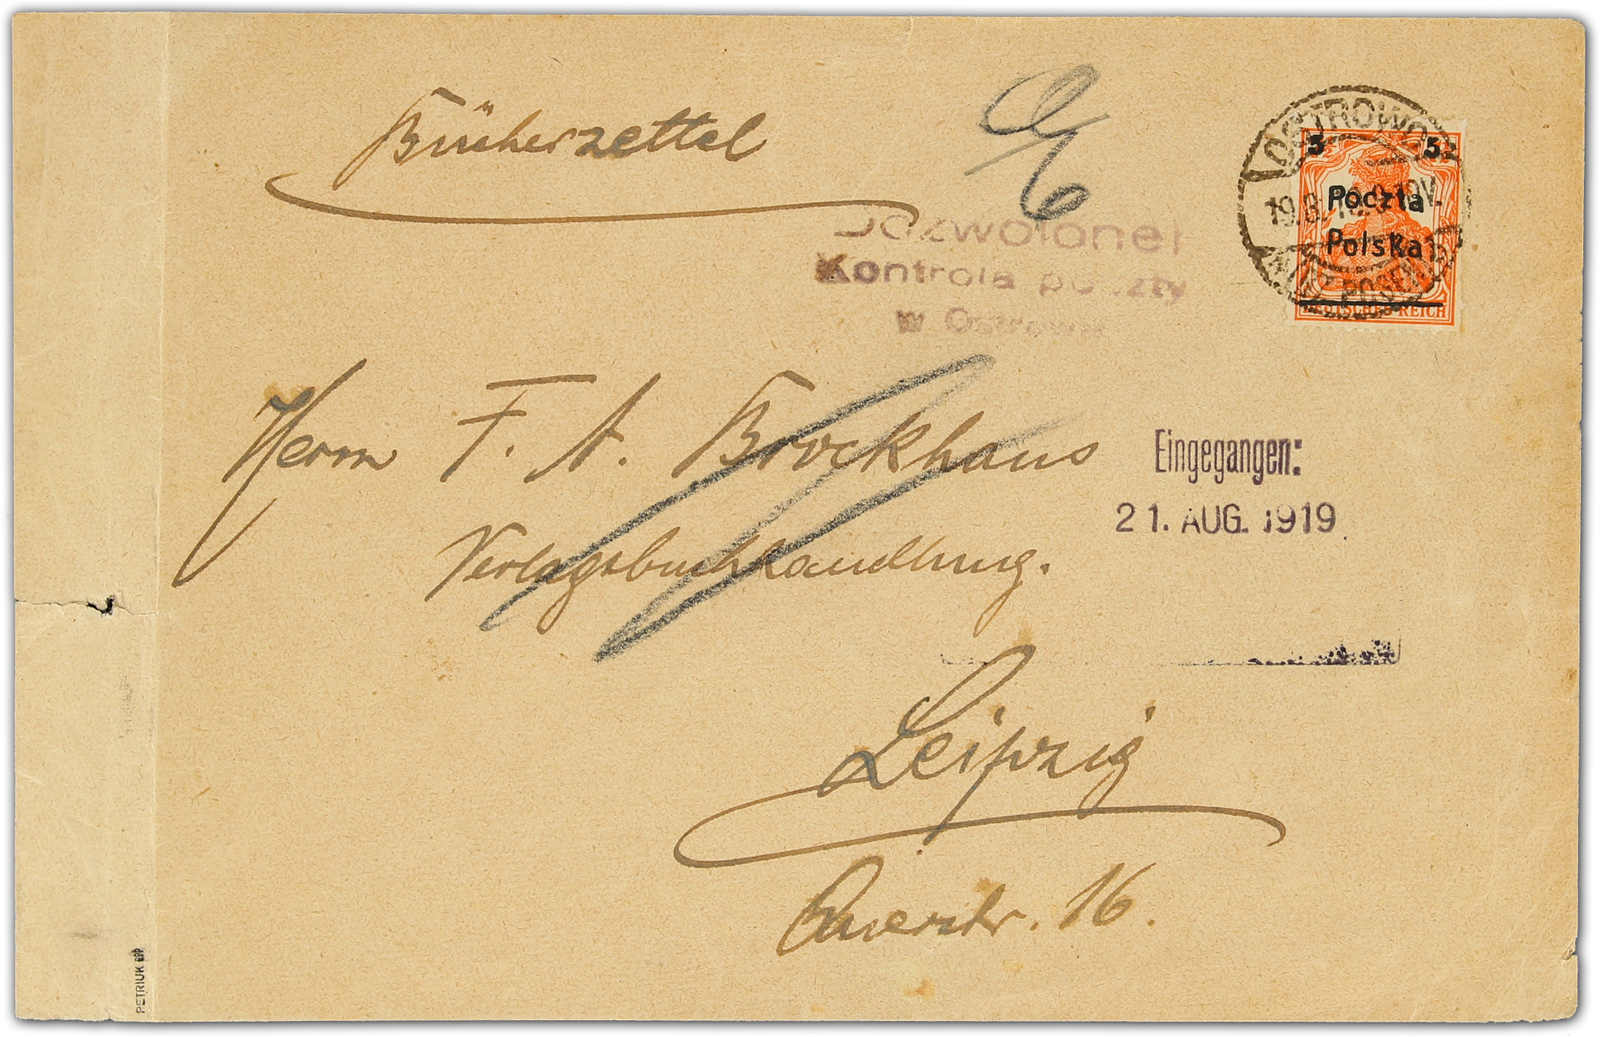 Bücherzettel
OSTROWO
19.8.19.
5 5
Poczta
Polska
POSEN
DEUTSCHES REICH
Dozwolone
Kontrola poczty
w Ostrowie
Herrn F. A. Brockhaus
Eingegangen:
21. AUG. 1919
Verlagsbuchhandlung.
Leipzig
Querstr. 16.
PETRIUK